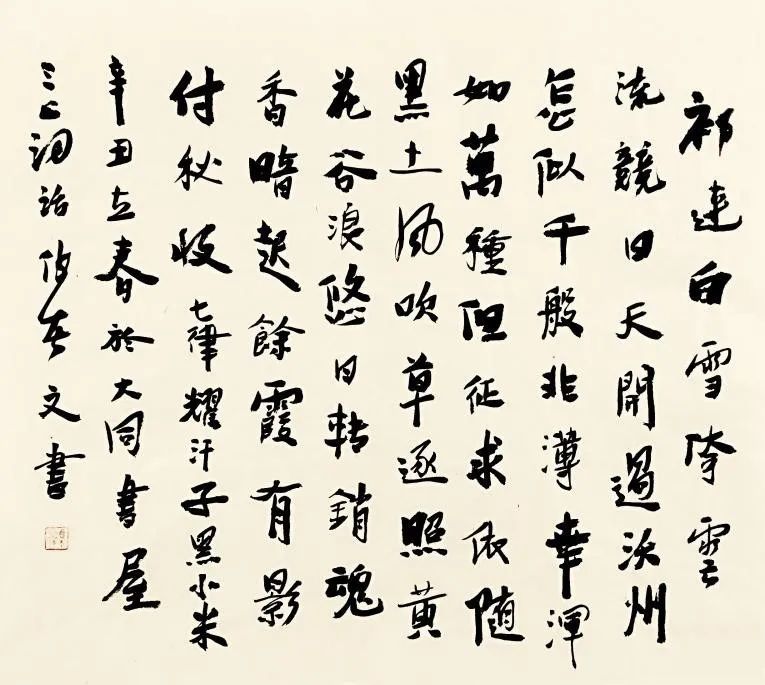 祁連白雪際雲
流競日天開過沃州
怎似千般非薄幸渾
如萬種但征求依隨
黑土風吹草逐照黃
花谷浪悠日轉銷魂
香暗起餘霞有影
付秋收七律耀汗子黑小米
辛丑立春於大同書屋
詞話文書